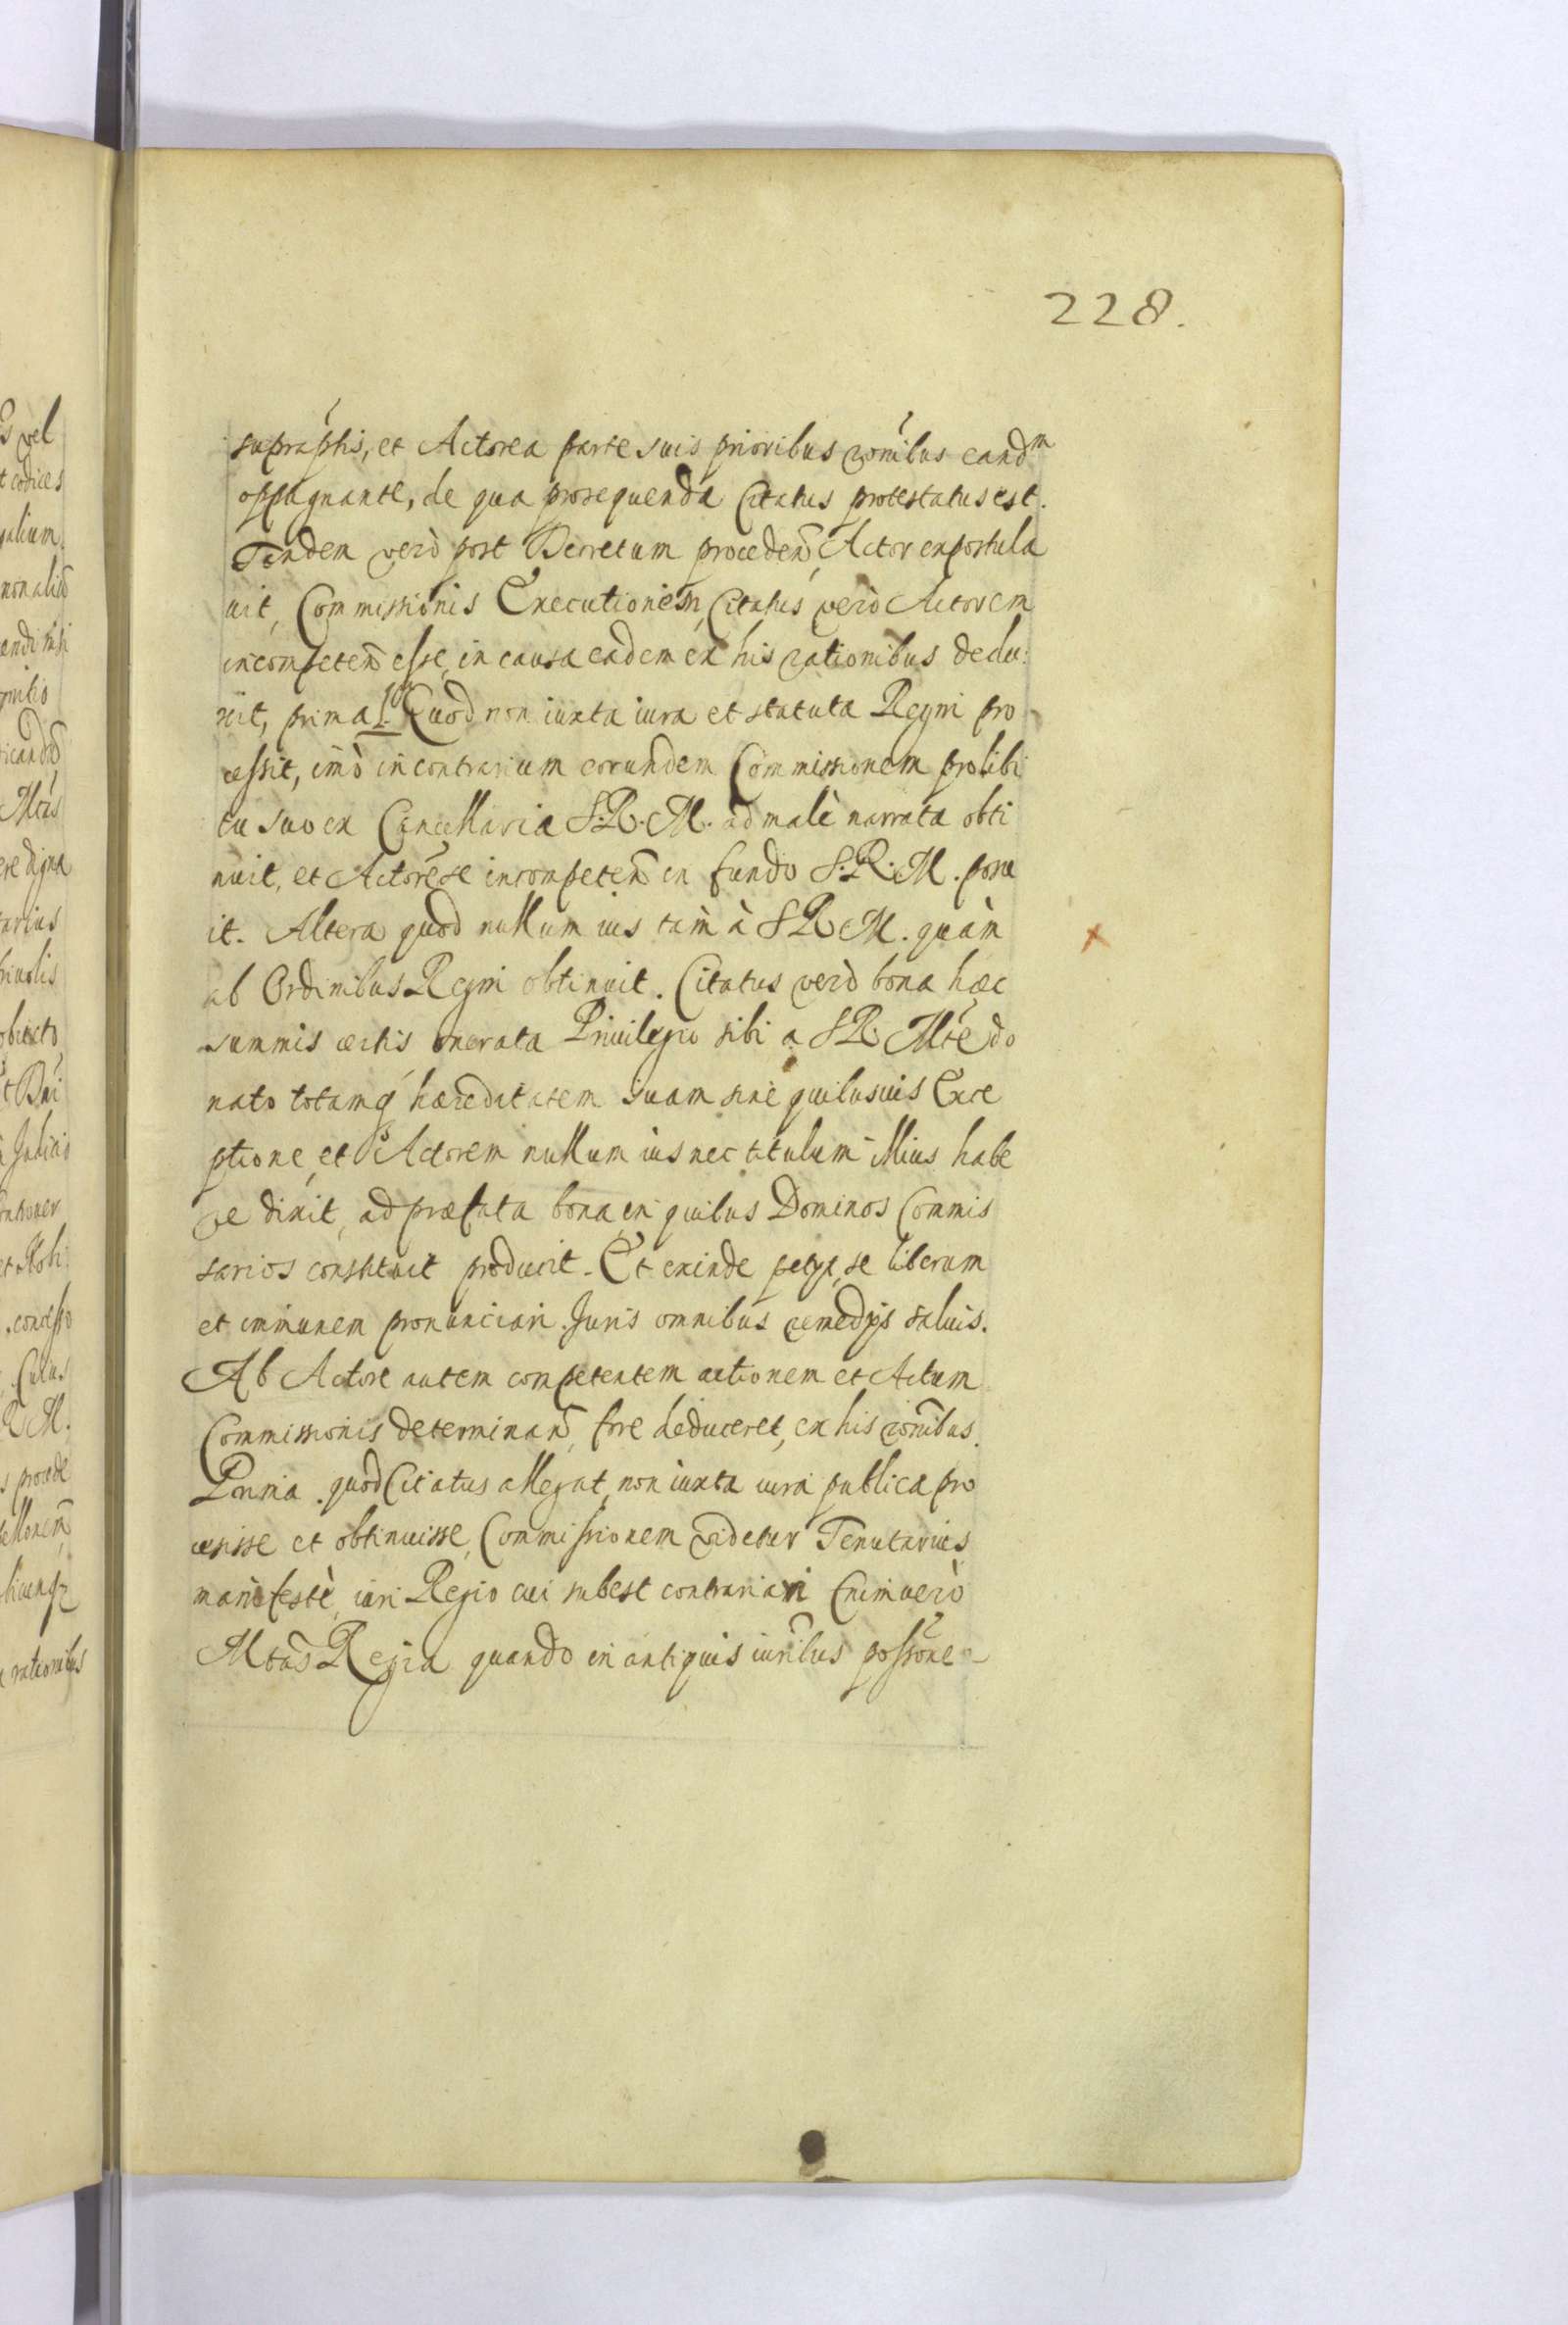 228.
supraptis, et Actorea parte suis prioribus rõnibus eandm
oppugnante, de qua prosequenda Citatus protestatus est.
Tandem verò post Decretum proceden̄ Actor expostula
uit, Commissionis Executionem, Citatus verò Actorem
incompeten̄ esse, in causa eadem ex his rationibus dedu:
xit, prima 1. Quod non iuxta iura et statuta Regni pro
cessit, imò in contrarium eorundem Commissionem pro libi
tu suo ex Cancellaria S. R. M. ad malè narrata obti
nuit, et Actorē se incompeten̄ in fundo S. R. M. posu
it. Altera quod nullum ius tam à S R M. quàm
ab Ordinibus Regni obtinuit. Citatus verò bona hæc
summis certis onerata Priuilegio sibi a S R Mte do
nato totamq́ hæreditatem suam sine quibusuis Exce
ptione, et Actorem nullum ius nec titulum illius habe
re dixit, ad præfata bona, in quibus Dominos Commis
sarios constituit produxit. Et exinde petyt, se liberum
et immunem pronunciari. Juris omnibus remedys saluis.
Ab Actore autem competentem actionem et Actum
Commissionis determinan̄, fore deduceret, ex his rõnibus.
Prima. quod Citatus allegat, non iuxta iura publica pro
cesisse et obtinuisse, Commissionem videtur Tenutarius
manifestè, iuri Regio cui subest contrariari Enimuerò
Mtas Regia quando in antiquis iuribus possõne
s vel
t codices
M.
rationibus